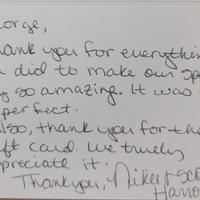 orge,
hank you for everythin
u did to make our spe
y so amazing. It was
perfect.
lso, thank you for the
ft card. We truly
preciate it.
Thankyou, Nikey & Sco
Harro